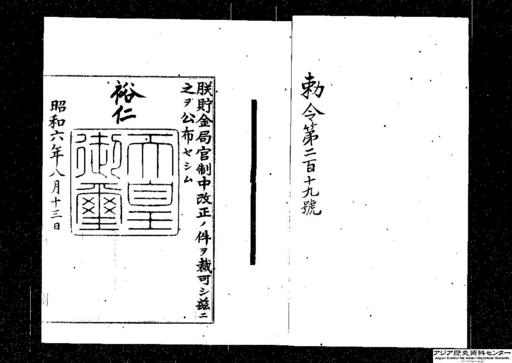 勅令第二百十九號
朕貯金局官制中改正ノ件ヲ裁可シ茲ニ
之ヲ公布セシム
裕仁
天皇
御璽
昭和六年八月十三日
アジア歴史資料センター
Japan Center for Asian Historical Records